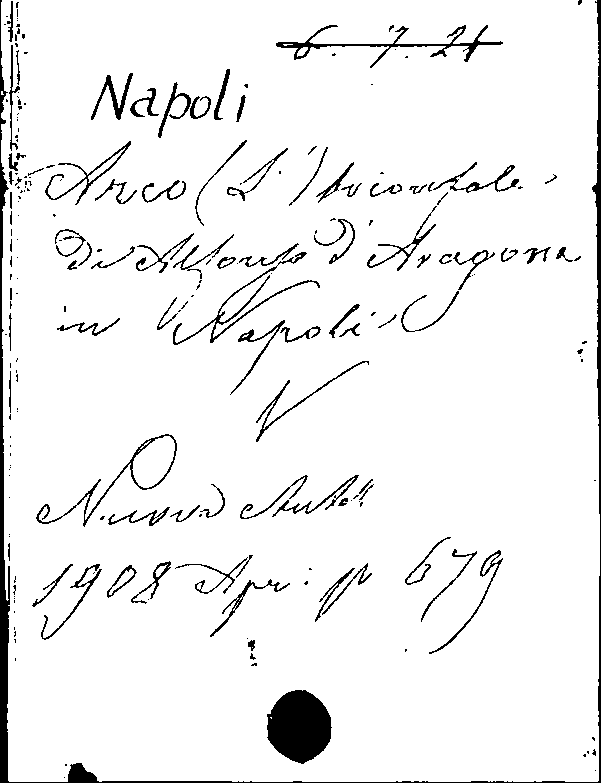 6. 7. 21
Napoli
Arco (L') trionfale
di Alfonso d'Aragona
in Napoli
V
Nuova Antoll
1908 Apr: p 679